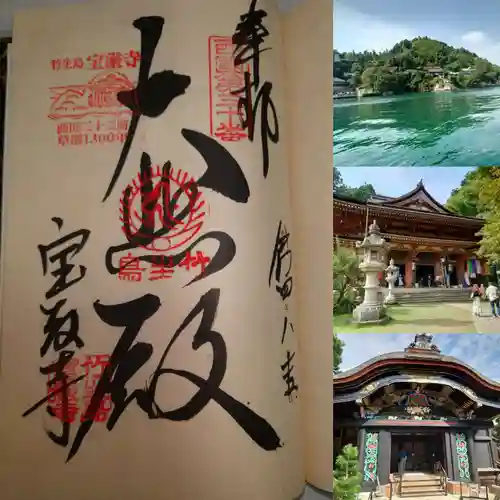 奉拝
西国第三十番
大悲殿
竹生島
宝厳寺
竹生島 宝厳寺
西国三十三所
草創1300年